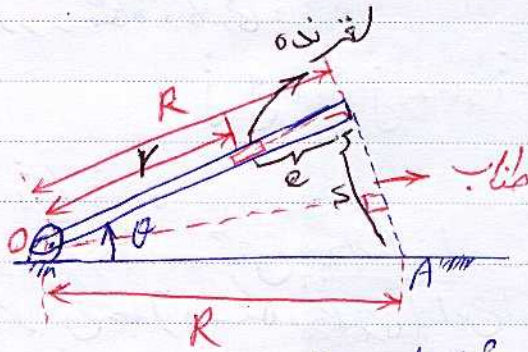 لغزنده
R
r
e
s
طناب
O
θ
A
R